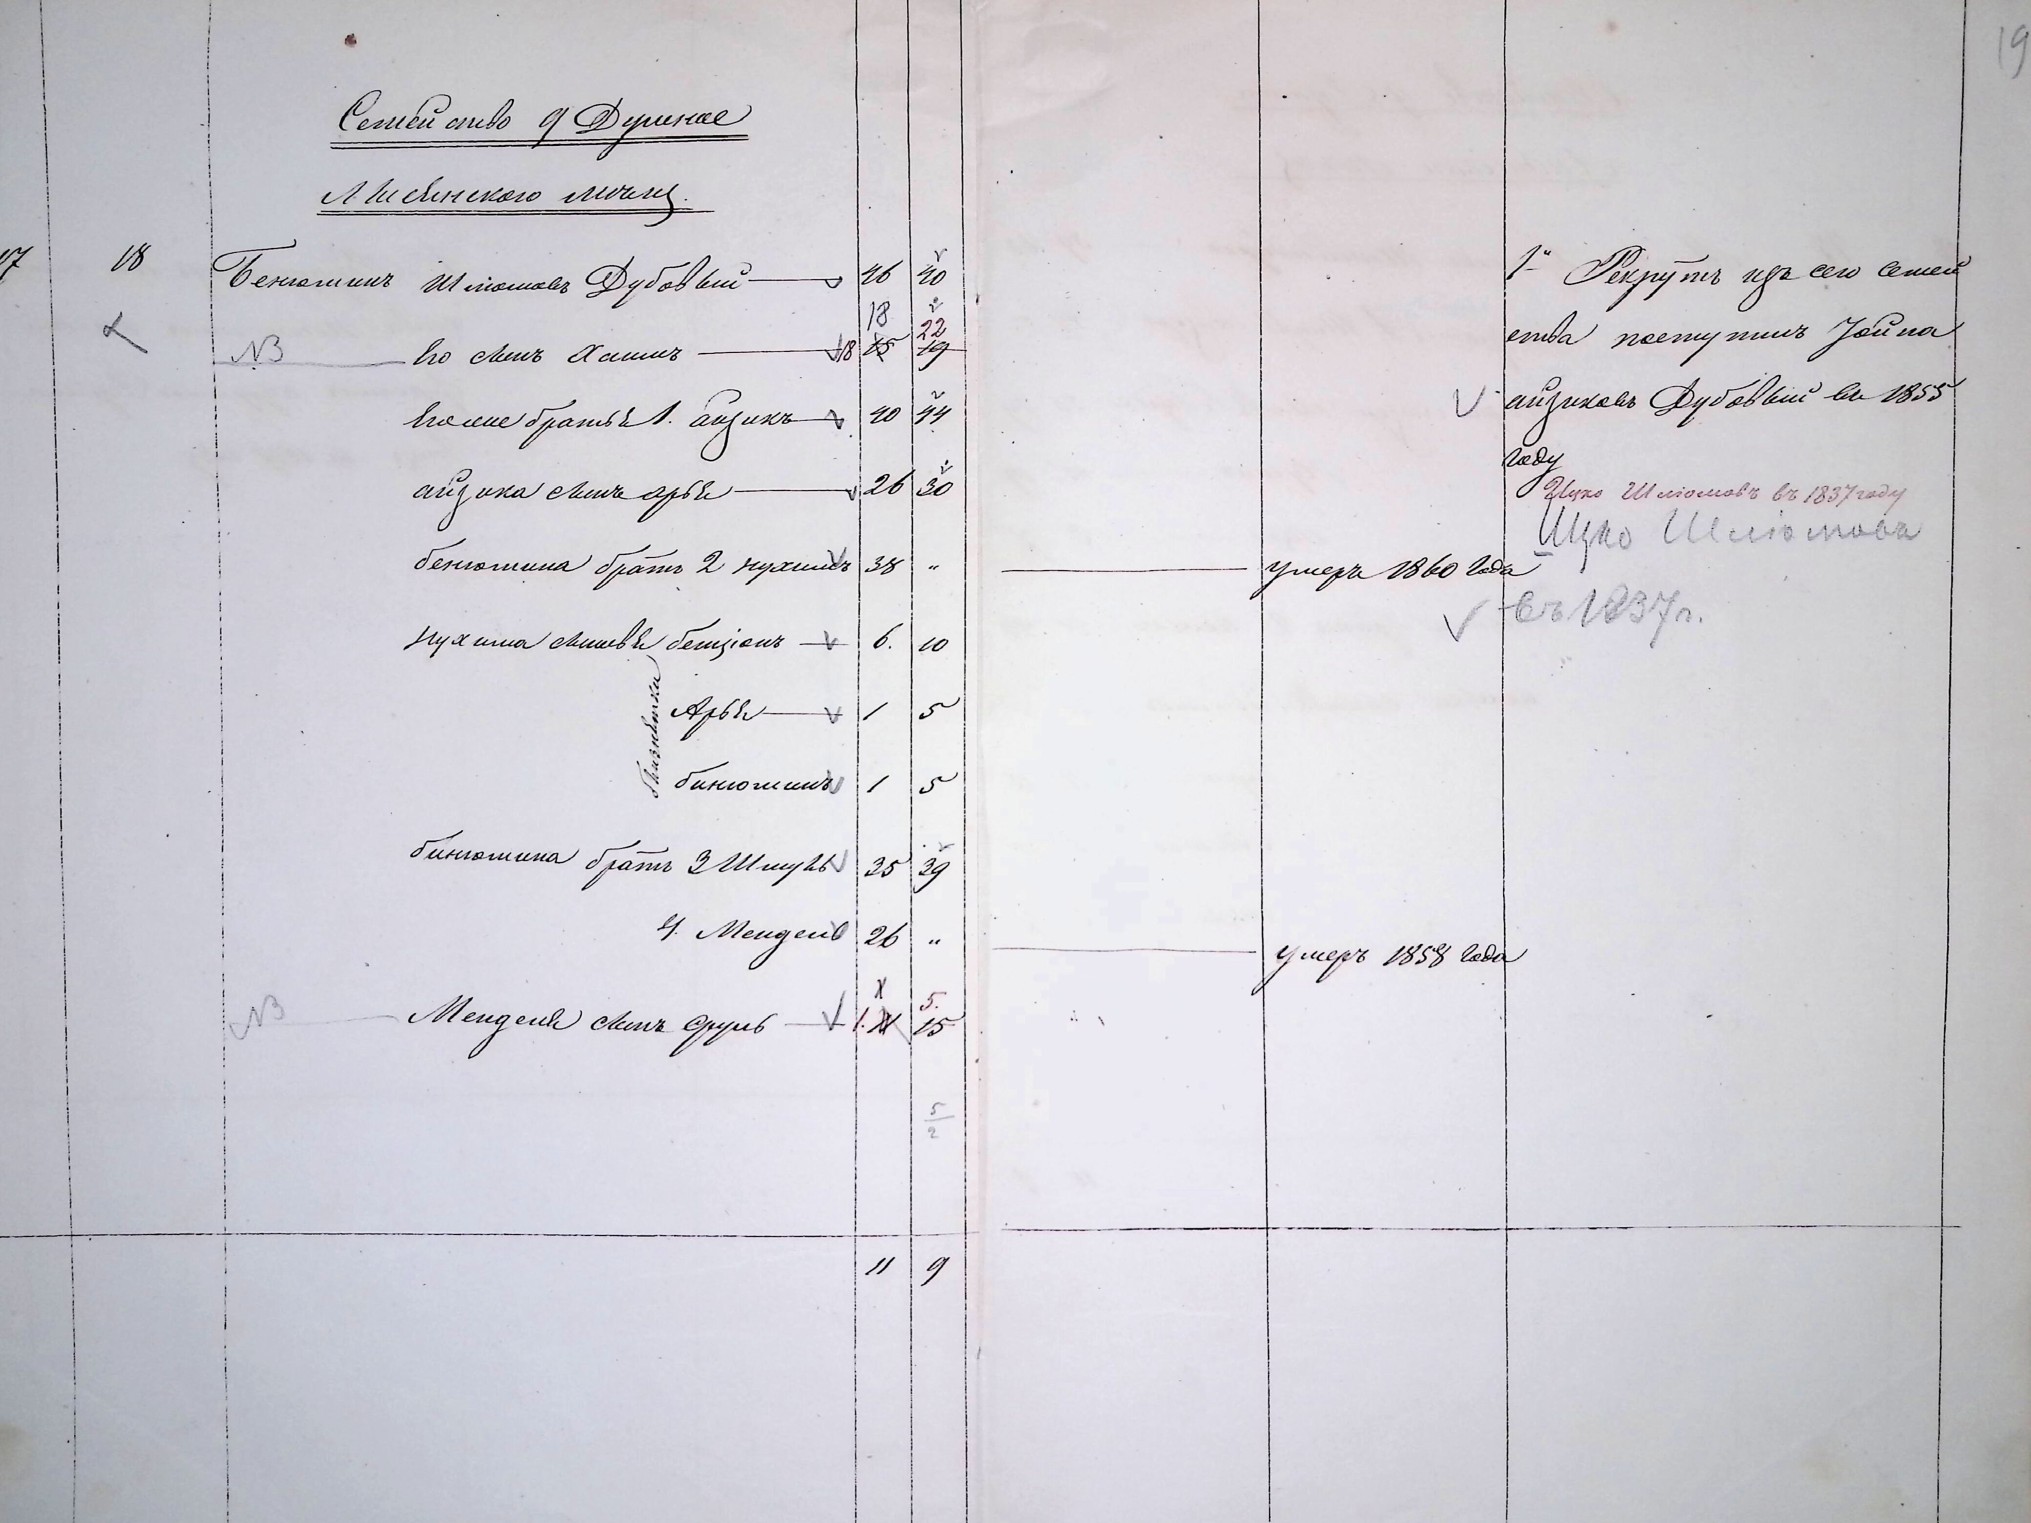 19
Семейство 9 Душное
Лисянского мѣщ.
17 18 Бенюминъ Шлiомовъ Дубовый 46 40
18 22
NB Его сынъ Хаимъ 18 15 19
Его же братья 1. Айзикъ 40 44
Айзика сынъ Арья 26 30
Бенюмина братъ 2 Нухимъ 38 " умеръ 1860 года
Нухима сыновья Бенцiонъ 6. 10
Близнѣтки
Арья 1 5
Бинюминъ 1 5
Бинюмина братъ 3 Шмуль 35 39
4. Мендель 26 " умеръ 1858 года
5.
NB Менделя сынъ Сруль 1. 11 15
5
2
11 9
1й Рекрутъ изъ сего семей
ства поступилъ Іойна
Айзиковъ Дубовый въ 1855
году
Ицко Шлiомовъ въ 1837 году
Ицко Шлiомова
въ 1837 г.